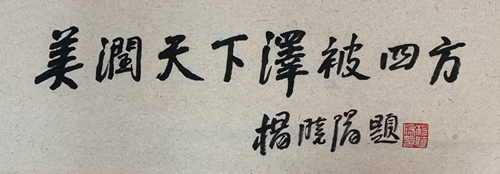 美潤天下澤被四方
楊曉陽題